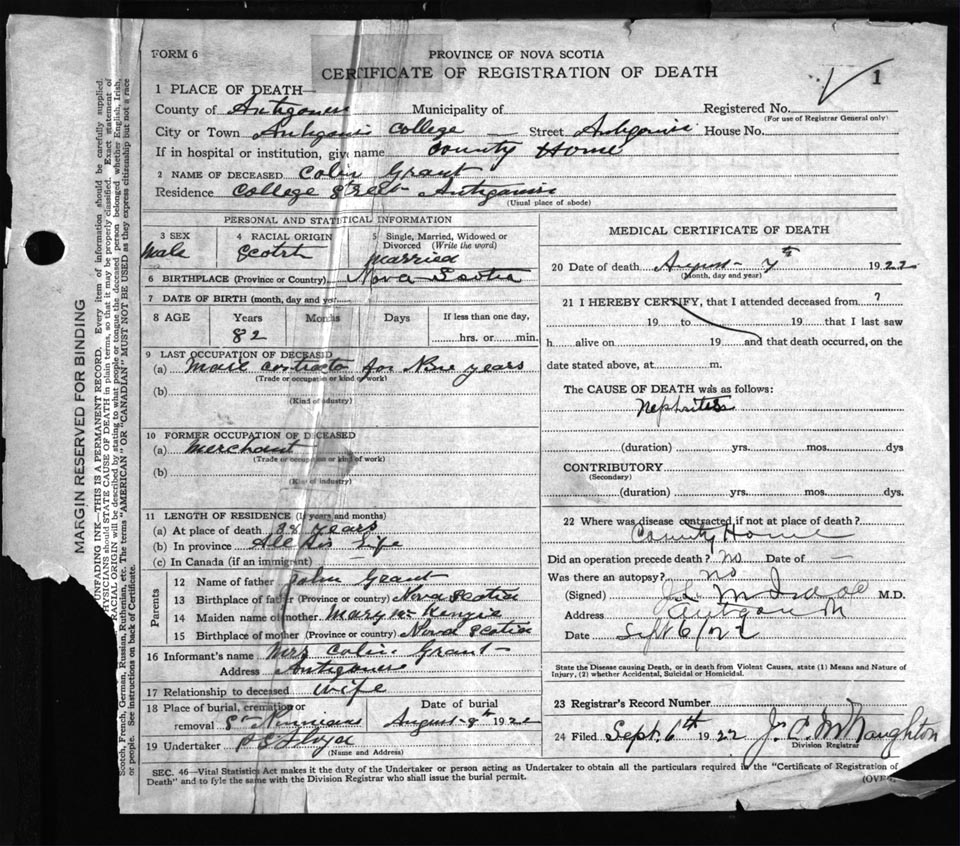 FORM 6
PROVINCE OF NOVA SCOTIA
CERTIFICATE OF REGISTRATION OF DEATH
1
1 PLACE OF DEATH—
County of Antigonish Municipality of Registered No.
(For use of Registrar General only)
City or Town Antigonish College — Street Antigonish House No.
If in hospital or institution, give name County Home
2 NAME OF DECEASED Colin Grant
Residence College Street Antigonish
(Usual place of abode)
PERSONAL AND STATISTICAL INFORMATION
3 SEX 4 RACIAL ORIGIN 5 Single, Married, Widowed or Divorced (Write the word)
Male Scotch Married
6 BIRTHPLACE (Province or Country) Nova Scotia
7 DATE OF BIRTH (month, day and ye
8 AGE Years Months Days If less than one day,
82 hrs. or min.
9 LAST OCCUPATION OF DECEASED
(a) Mail contractor for years
(Trade or occupation or kind of work)
(b)
(Kind of industry)
10 FORMER OCCUPATION OF DECEASED
(a) Merchant
(Trade or occupation or kind of work)
(b)
(Kind of industry)
11 LENGTH OF RESIDENCE (In years and months)
(a) At place of death 38 years
(b) In province All his life
(c) In Canada (if an immigrant) —
Parents
12 Name of father John Grant
13 Birthplace of father (Province or country) Nova Scotia
14 Maiden name of mother Mary McKenzie
15 Birthplace of mother (Province or country) Nova Scotia
16 Informant's name Mrs Colin Grant
Address Antigonish
17 Relationship to deceased Wife
18 Place of burial, cremation or removal Date of burial
August 8th 1922
19 Undertaker
(Name and Address)
MEDICAL CERTIFICATE OF DEATH
20 Date of death August 7th 1922
(Month, day and year)
21 I HEREBY CERTIFY, that I attended deceased from ?
19 to 19 that I last saw
h alive on 19 and that death occurred, on the
date stated above, at m.
The CAUSE OF DEATH was as follows:
Nephritis
(duration) yrs. mos. dys
CONTRIBUTORY
(Secondary)
(duration) yrs. mos. dys.
22 Where was disease contracted if not at place of death?
County Home
Did an operation precede death? No Date of —
Was there an autopsy? no
(Signed) M.D.
Address Antigonish
Date Sept 6/22
State the Disease causing Death, or in death from Violent Causes, state (1) Means and Nature of
Injury, (2) whether Accidental, Suicidal or Homicidal.
23 Registrar's Record Number
24 Filed Sept. 6th 1922 J. C. McNaughton
Division Registrar
SEC. 46—Vital Statistics Act makes it the duty of the Undertaker or person acting as Undertaker to obtain all the particulars required in the "Certificate of Registration of
Death" and to fyle the same with the Division Registrar who shall issue the burial permit.
(OVER
MARGIN RESERVED FOR BINDING
UNFADING INK—THIS IS A PERMANENT RECORD. Every item of information should be carefully supplied.
PHYSICIANS should STATE CAUSE OF DEATH in plain terms, so that it may be properly classified. Exact statement of
RACIAL ORIGIN will be described by stating to what people or tongue the deceased person belonged whether English, Irish,
Scotch, French, German, Russian, Ruthenian, etc. The terms "AMERICAN" OR "CANADIAN" MUST NOT BE USED as they express citizenship but not a race
or people. See instructions on back of Certificate.